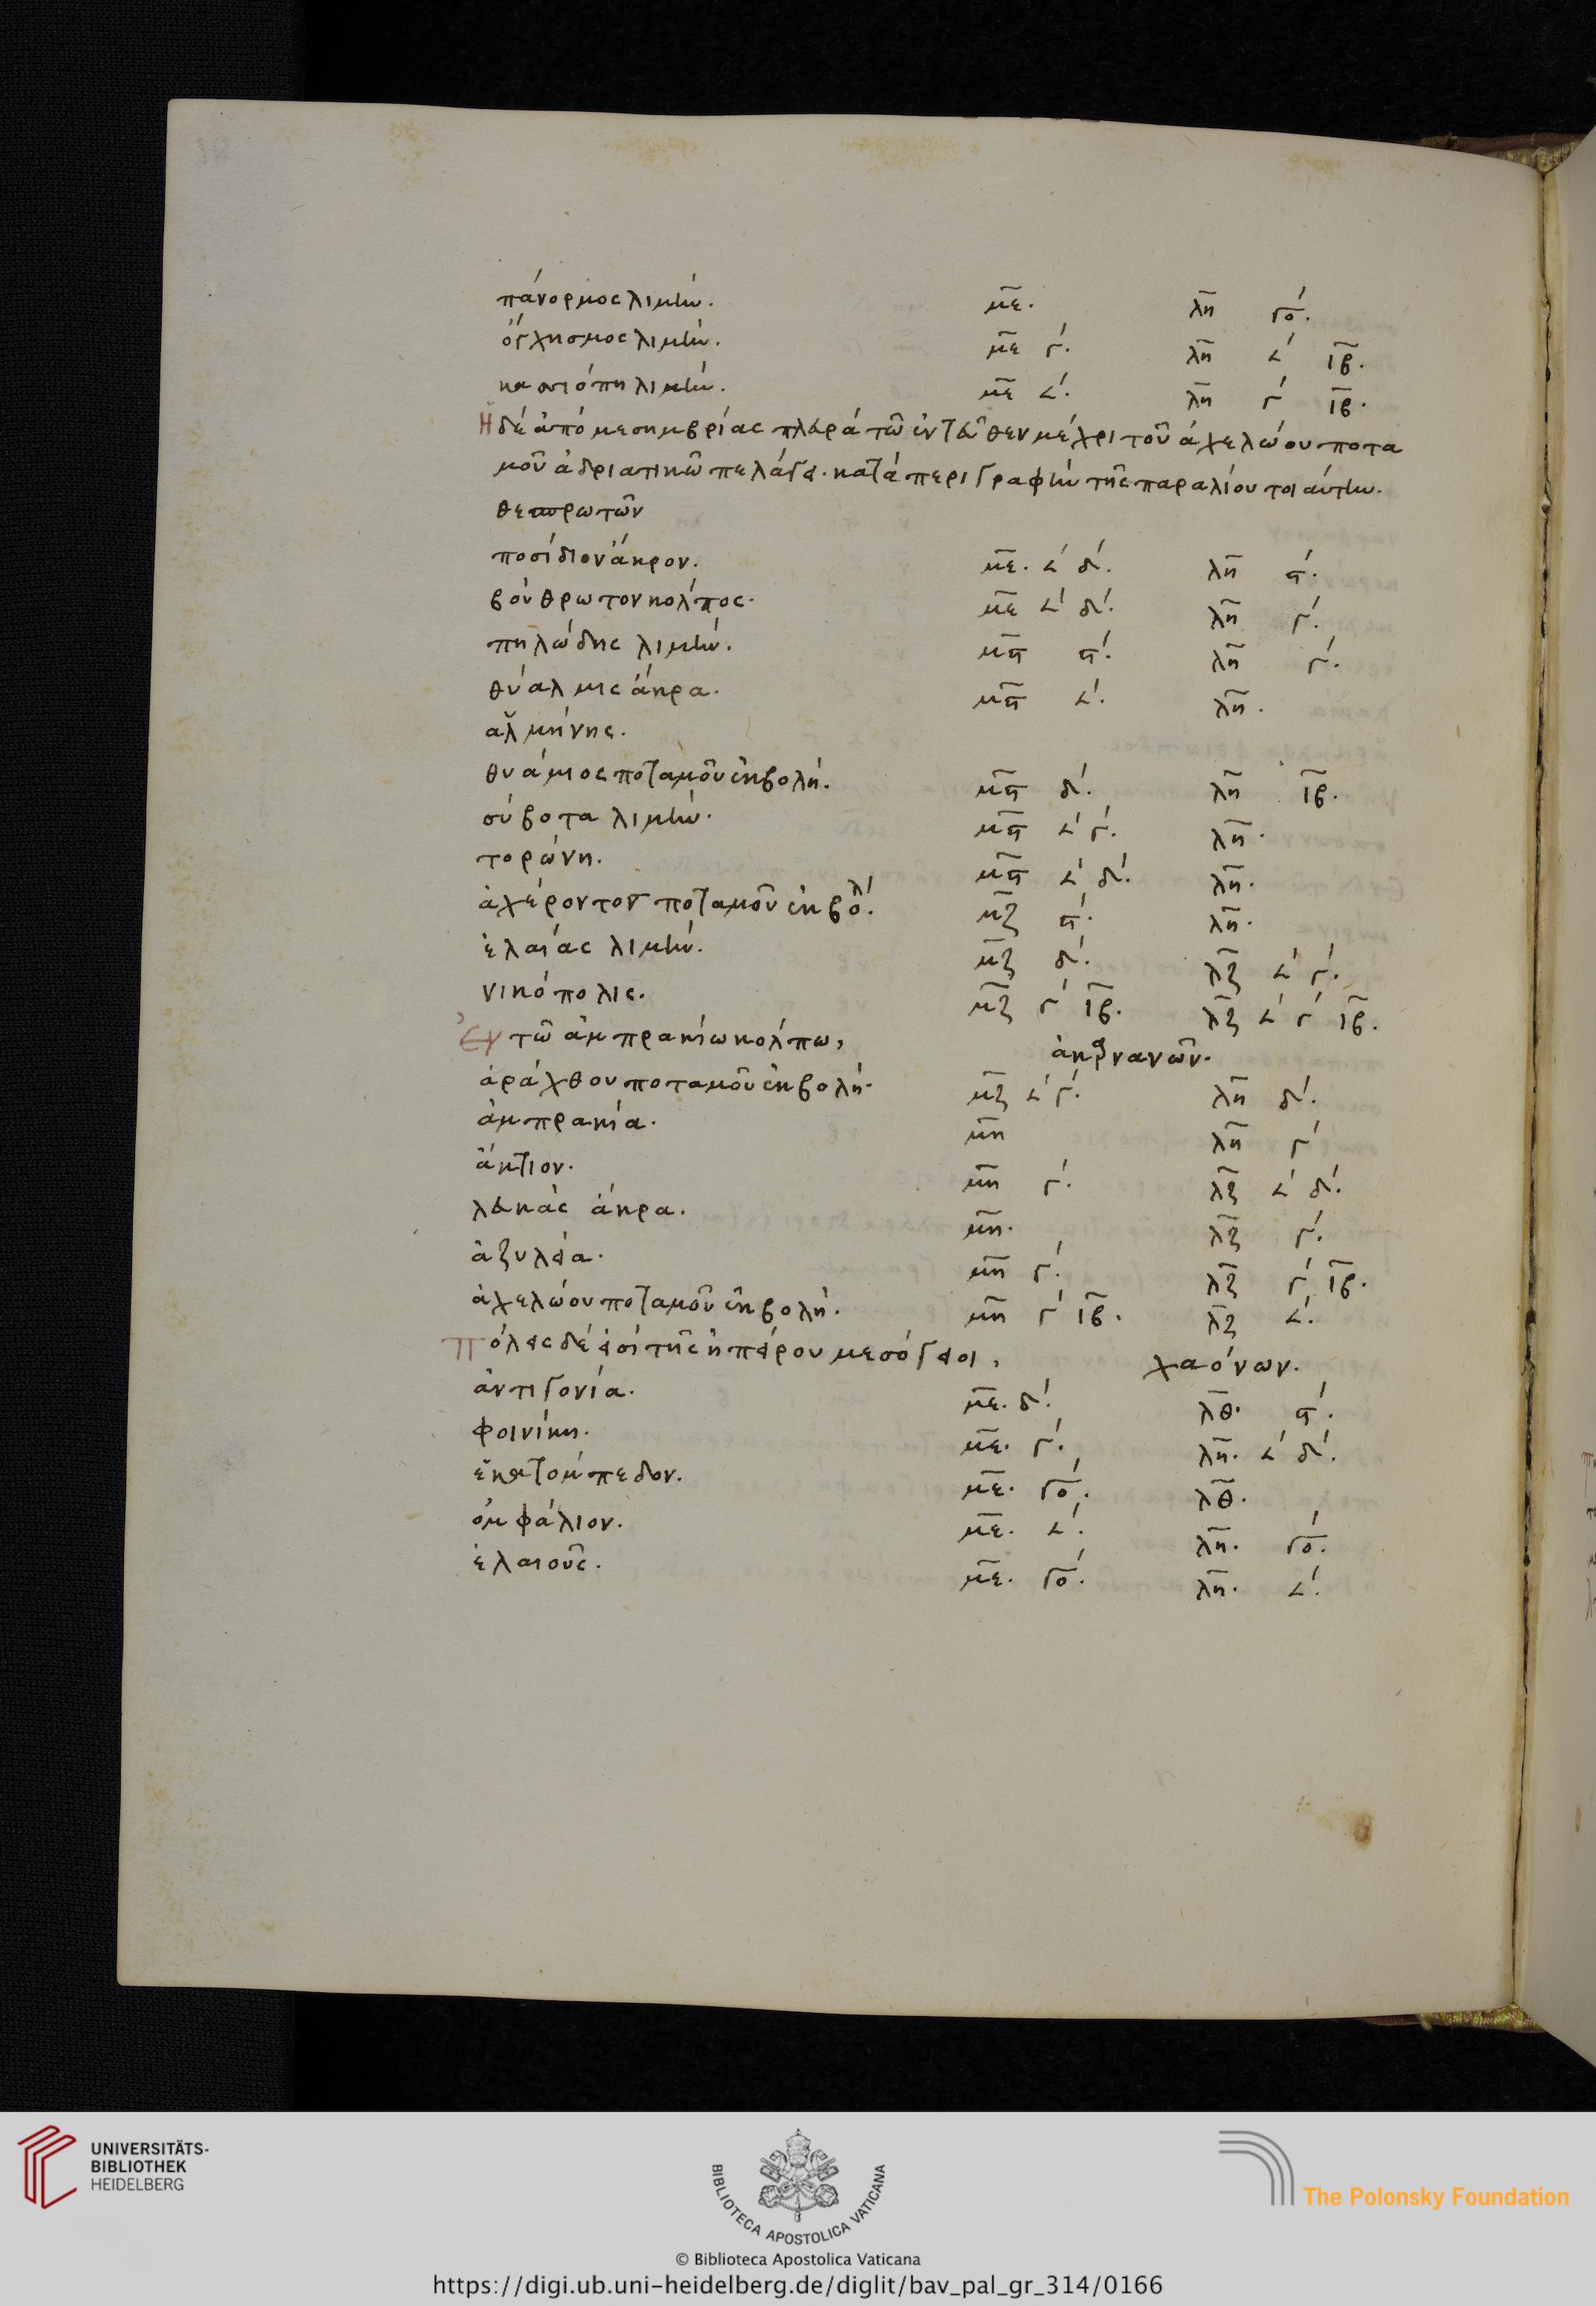 πάνορμος λιμήν. με. λη γο΄.
όγχησμος λιμήν. με γ΄. λη 𐅵΄ ιβ.
κασσιόπη λιμήν. με 𐅵΄. λη γ΄ ιβ.
Ἡ δέ ἀπό μεσημβρίας πλευρά τῶ ἐντεῦθεν μέχρι τοῦ ἀχελώου ποτα
μοῦ ἀδριατικῶ πελάγει. κατά περιγραφήν τῆς παραλίου τοιαύτην.
θεσπρωτῶν
ποσίδιον ἄκρον. με. 𐅵΄ δ΄. λη ϛ΄.
βούθρωτον κολπος. με 𐅵΄ δ΄. λη γ΄.
πηλώδης λιμήν. μϛ ϛ΄. λη γ΄.
θύαλμις άκρα. μϛ 𐅵΄. λη.
αλμήνης.
θυάμιος ποταμοῦ ἐκβολή. μϛ δ΄. λη ιβ.
σύβοτα λιμήν. μϛ 𐅵΄ γ΄. λη.
τορώνη. μϛ 𐅵΄ δ΄. λη.
ἀχέροντος ποταμοῦ ἐκβολ΄. μζ ϛ΄. λη.
ἐλαίας λιμήν. μζ δ΄. λζ 𐅵΄ γ΄.
νικόπολις. μζ γ΄ ιβ. λζ 𐅵΄ γ΄ ιβ.
Ἐν τῶ ἀμπρακίω κολπω, ἀκαρνανῶν.
ἀράχθου ποταμοῦ ἐκβολή. μζ 𐅵΄ γ΄. λη δ΄.
ἀμπρακία. μη λη γ΄
ἄκτιον. μη γ΄. λζ 𐅵΄ δ΄.
λευκὰς ἄκρα. μη. λζ γ΄.
ἀζυλεία. μη γ΄. λζ γ΄ ιβ.
ἀχελώου ποταμοῦ ἐκβολή. μη γ΄ ιβ. λζ 𐅵΄.
Πόλεις δέ εἰσί τῆς ἠπείρου μεσόγειοι, χαόνων.
ἀντιγονία. με. δ΄. λθ. ϛ΄.
φοινίκη. με. γ΄. λη. 𐅵΄ δ΄.
ἑκατόμπεδον. με. γο΄. λθ.
ὀμφάλιον. με. 𐅵΄. λη. γο΄.
ἐλαιοῦς. με. γο΄. λη. 𐅵΄.
UNIVERSITÄTS-
BIBLIOTHEK
HEIDELBERG
BIBLIOTECA APOSTOLICA VATICANA
The Polonsky Foundation
© Biblioteca Apostolica Vaticana
https://digi.ub.uni-heidelberg.de/diglit/bav_pal_gr_314/0166